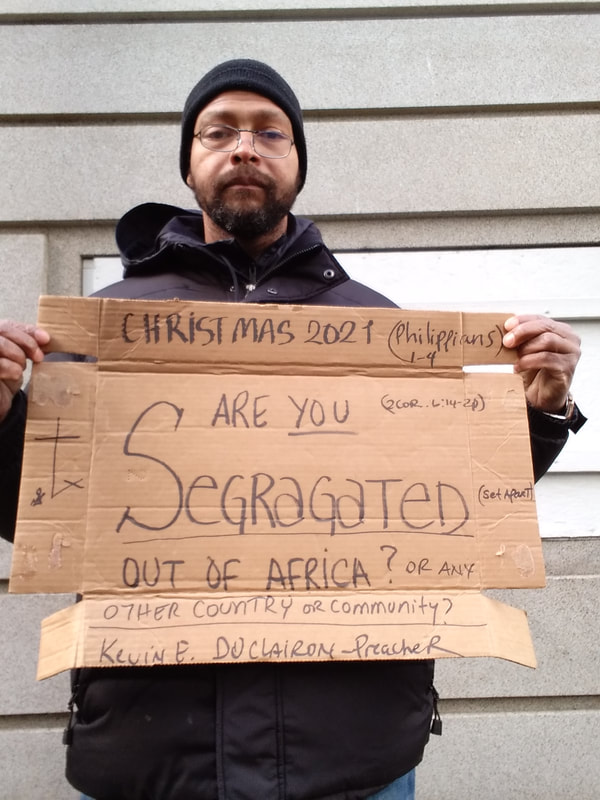 CHRISTMAS 2021 (Philippians)
1-4
ARE YOU (2COR. 6:14-20)
SEGRAGATED (Set Apart)
OUT OF AFRICA? OR ANY
OTHER COUNTRY or Community?
Kevin E. DUCLAIRON-Preacher